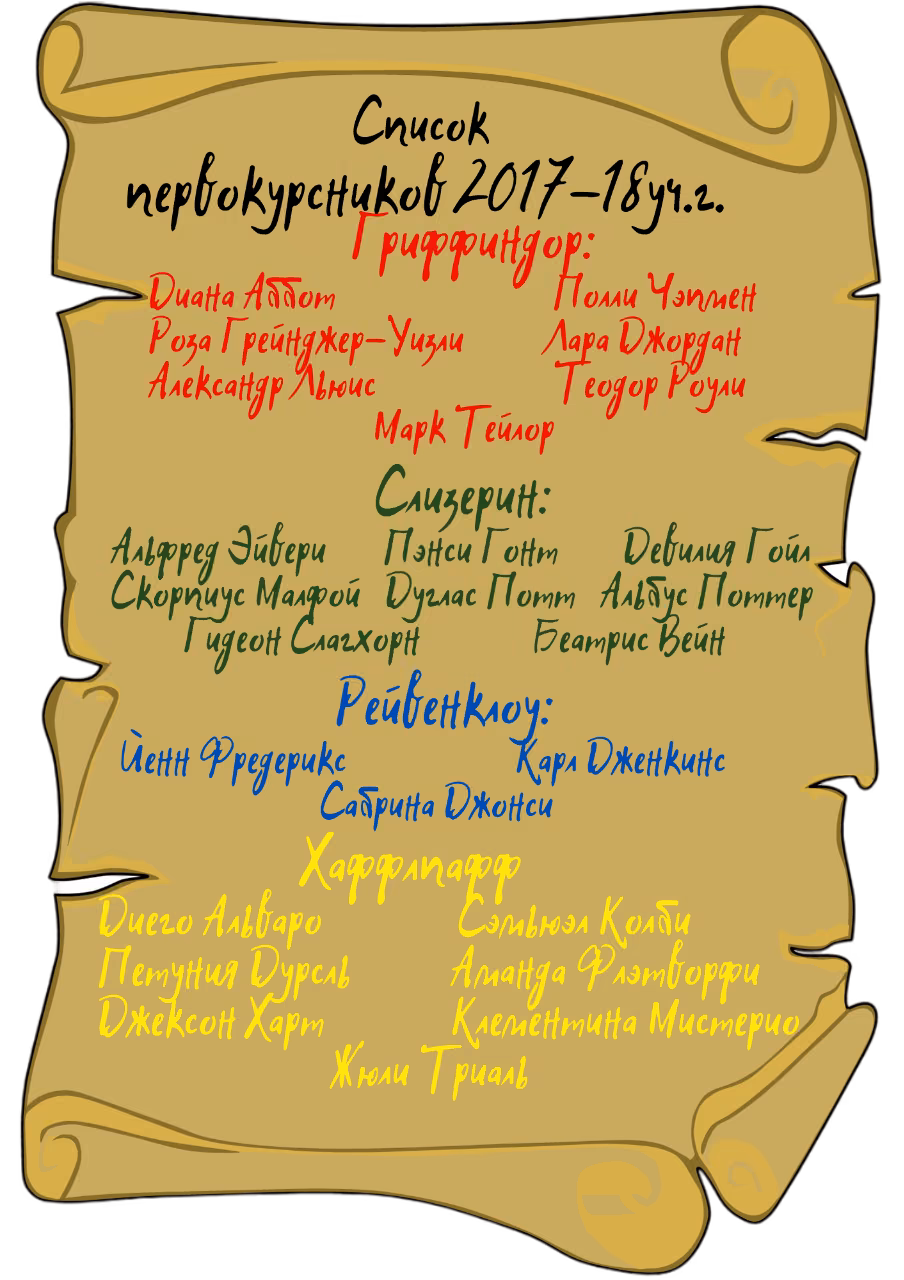 Список
первокурсников 2017-18уч.г.
Гриффиндор:
Диана Аббот Полли Чэпмен
Роза Грейнджер-Уизли Лара Джордан
Александр Льюис Теодор Роули
Марк Тейлор
Слизерин:
Альфред Эйвери Пэнси Гонт Девилия Гойл
Скорпиус Малфой Дуглас Потт Альбус Поттер
Гидеон Слагхорн Беатрис Вейн
Рейвенклоу:
Йенн Фредерикс Карл Дженкинс
Сабрина Джонси
Хаффлпафф
Диего Альваро Сэмьюэл Колби
Петуния Дурсль Аманда Флэтворфи
Джексон Харт Клементина Мистерио
Жюли Триаль